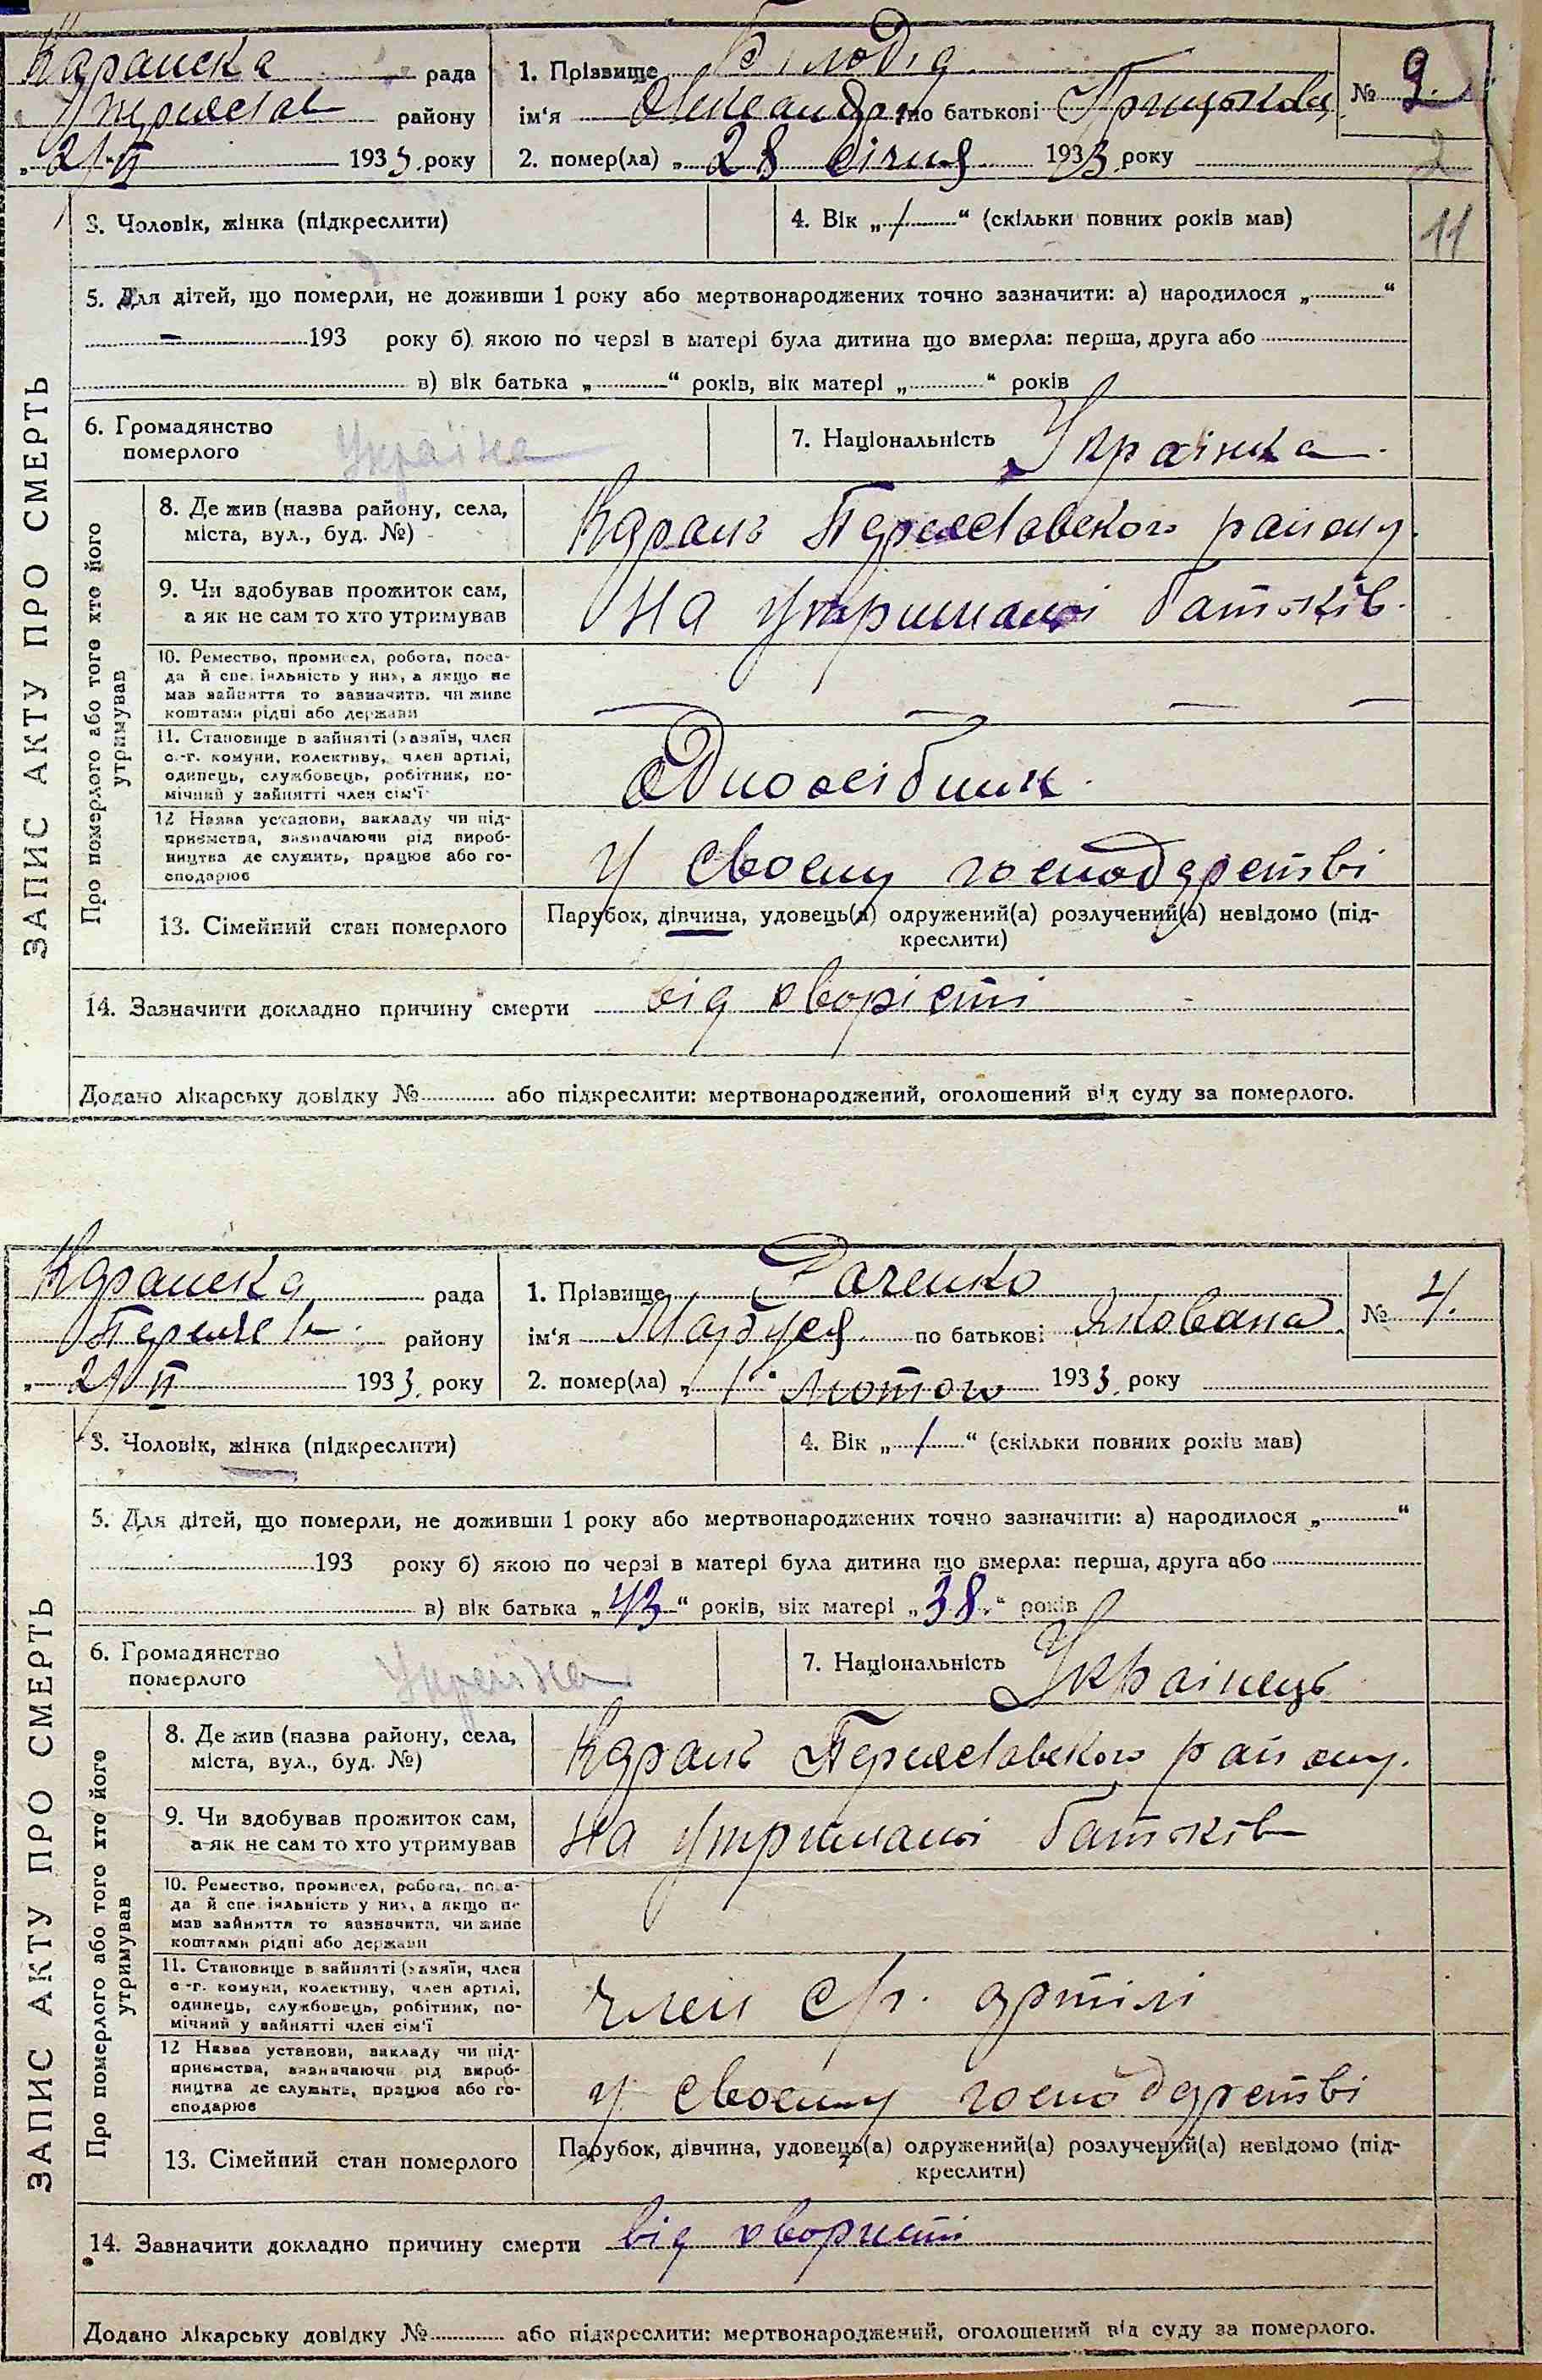 Каранска рада
району
„ 21/II 1933. року
1. Прізвище Білодід
ім'я Олександра по батькові Грицькова
2. помер(ла) „ 28 січня 1933. року
№
11
3. Чоловік, жінка (підкреслити)
4. Вік „ 1 “ (скільки повних років мав)
5. Для дітей, що померли, не доживши 1 року або мертвонароджених точно зазначити: а) народилося „ “
– 193 року б) якою по черзі в матері була дитина що вмерла: перша, друга або
в) вік батька „ “ років, вік матері „ “ років
6. Громадянство
померлого
Україна
7. Національність Українка
ЗАПИС АКТУ ПРО СМЕРТЬ
Про померлого або того хто його
утримував
8. Де жив (назва району, села,
міста, вул., буд. №)
Карань Переяславского району
9. Чи здобував прожиток сам,
а як не сам то хто утримував
На утриманні батьків.
10. Ремество, промисел, робота, поса-
да й спеціяльність у них, а якщо не
мав зайняття то зазначити, чи живе
коштами рідні або держави
11. Становище в зайнятті (хазяїн, член
с.-г. комуни, колективу, член артілі,
одинець, службовець, робітник, по-
мічний у зайнятті член сім'ї
Одноосібник
12 Назва установи, закладу чи під-
приємства, зазначаючи рід вироб-
ництва де служить, працює або го-
сподарює
У своєму господарстві
13. Сімейний стан померлого
Парубок, дівчина, удовець(а) одружений(а) розлучений(а) невідомо (під-
креслити)
14. Зазначити докладно причину смерти від хворісті
Додано лікарську довідку № або підкреслити: мертвонароджений, оголошений від суду за померлого.
Каранска рада
району
„ 21/II 1933. року
1. Прізвище
ім'я Маруся по батькові Яковвна
2. помер(ла) „ 1 “ лютого 1933. року
№ 4.
3. Чоловік, жінка (підкреслити)
4. Вік „ 1 “ (скільки повних років мав)
5. Для дітей, що померли, не доживши 1 року або мертвонароджених точно зазначити: а) народилося „ “
193 року б) якою по черзі в матері була дитина що вмерла: перша, друга або
в) вік батька „ 43 “ років, вік матері „ 38. “ років
6. Громадянство
померлого
Україна
7. Національність Українець
ЗАПИС АКТУ ПРО СМЕРТЬ
Про померлого або того хто його
утримував
8. Де жив (назва району, села,
міста, вул., буд. №)
Карань Переяславского району.
9. Чи здобував прожиток сам,
а як не сам то хто утримував
На утриманні батьків
10. Ремество, промисел, робота, поса-
да й спеціяльність у них, а якщо не
мав зайняття то зазначити, чи живе
коштами рідні або держави
11. Становище в зайнятті (хазяїн, член
с.-г. комуни, колективу, член артілі,
одинець, службовець, робітник, по-
мічний у зайнятті член сім'ї
член с/г. артілі
12 Назва установи, закладу чи під-
приємства, зазначаючи рід вироб-
ництва де служить, працює або го-
сподарює
у своєму господарстві
13. Сімейний стан померлого
Парубок, дівчина, удовець(а) одружений(а) розлучений(а) невідомо (під-
креслити)
14. Зазначити докладно причину смерти від хвористі
Додано лікарську довідку № або підкреслити: мертвонароджений, оголошений від суду за померлого.